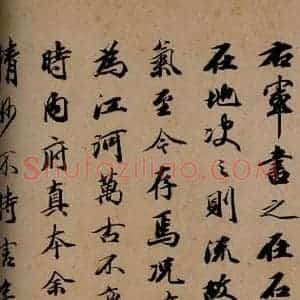 右軍書之在石
在地决之則流故
氣至今存焉况
為江河萬古不
時内府真本余
妙不時
Shufaziliao.com